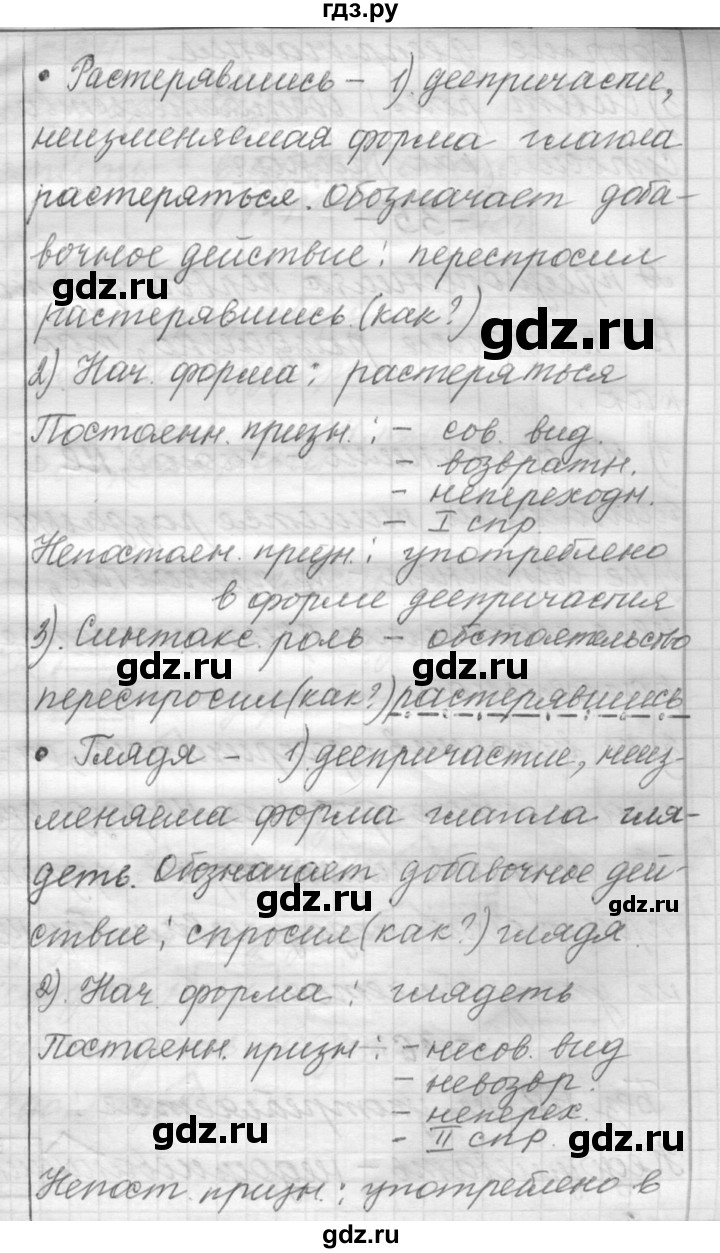 гдз.ру
• Растерявшись – 1) деепричастие,
неизменяемая форма глагола
растеряться. Обозначает доба-
вочное действие: переспросил
gdz.ru
растерявшись (как?)
gdz.ru
2) Нач. форма: растеряться
Постоянн. призн.: – сов. вид.
– возвратн.
– непереходн.
– I спр.
Непостоян. призн.: употреблено
в форме деепричастия
3). Синтакс. роль – обстоятельство
gdz.ru gdz.ru
переспросил (как?) растерявшись
• Глядя – 1) деепричастие, неиз-
меняема форма глагола гля-
деть. Обозначает добавочное дей-
gdz.ru gdz.ru
ствие: спросил (как?) глядя.
2). Нач. форма: глядеть
Постоянн. призн: – несов. вид
– невозвр.
– неперех.
gdz.ru gdz.ru
– II спр.
Непост. призн.: употреблено в
gdz.ru